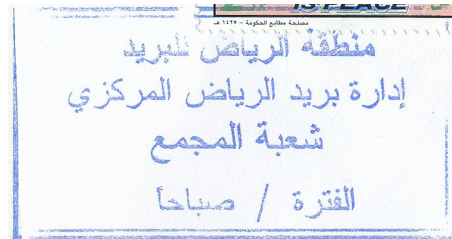 IS PEACE
مصلحة مطابع الحكومة - ١٤٢٥ هـ
منطقة الرياض للبريد
إدارة بريد الرياض المركزي
شعبة المجمع
الفترة / صباحاً